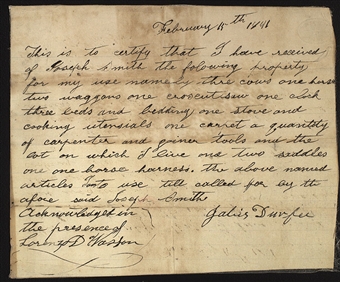 February 15th 1841
This is to certify that I have received
of Joseph Smith the following property
for my use namely three cows one horse
two waggons one crosscutsaw one clock
three beds and beding one stove and
cooking utensials one carpet a quantity
of carpenter and joiner tools and the
lot on which I live one two saddles
one one horse harness. the above named
articles to use till called for by th
afore said Joseph Smith
Acknowledged in
the presence of
Jabez Durfee
Lorenzo D Wasson